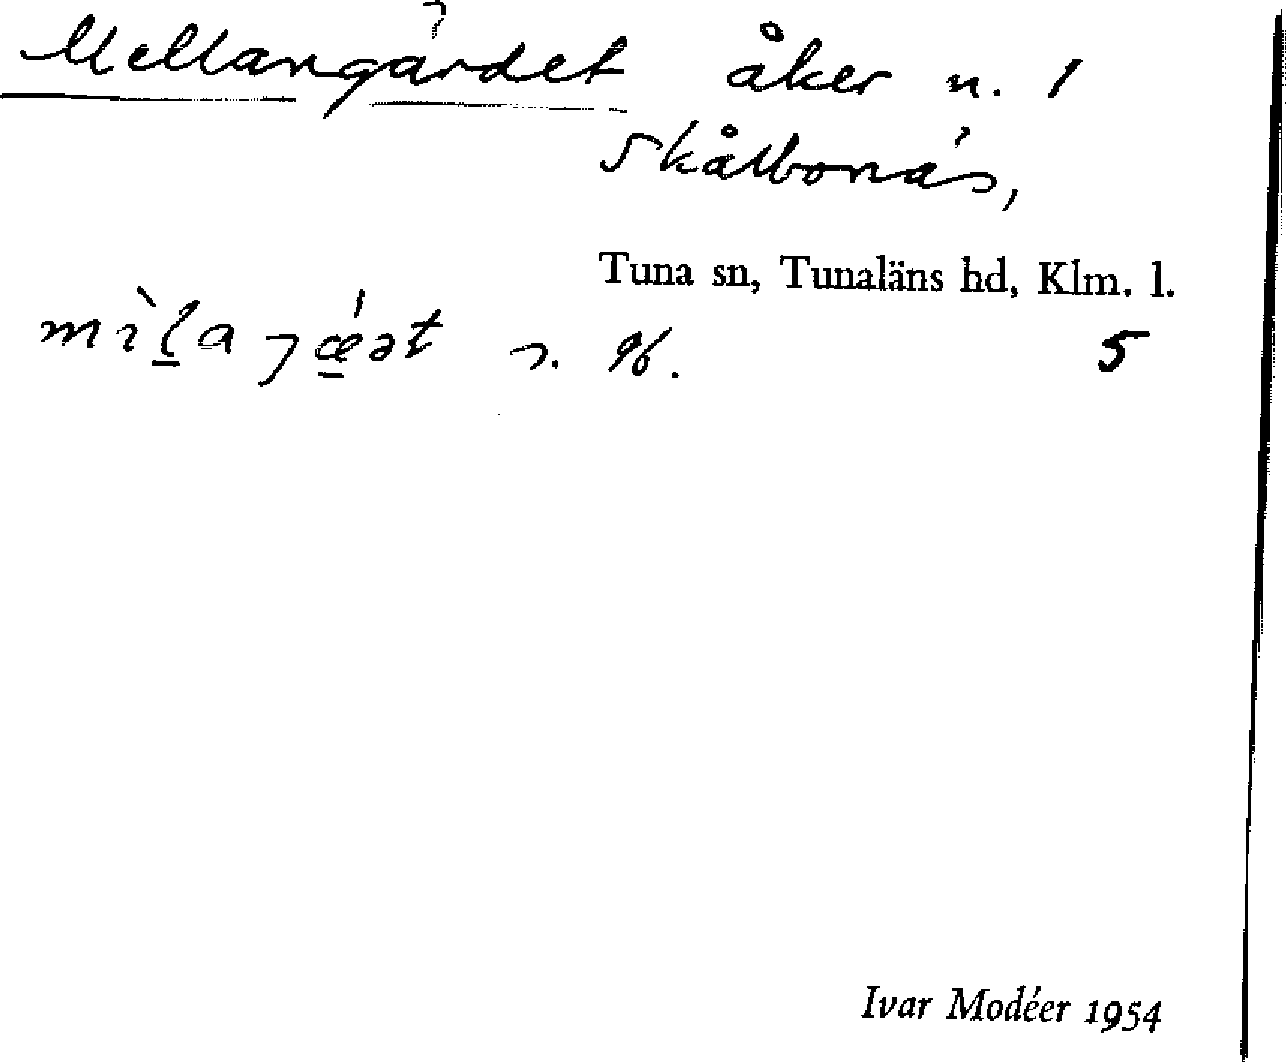 Mellangärdet åker n. 1
Skålbonäs,
Tuna sn, Tunaläns hd, Klm. l.
5
Ivar Modéer 1954